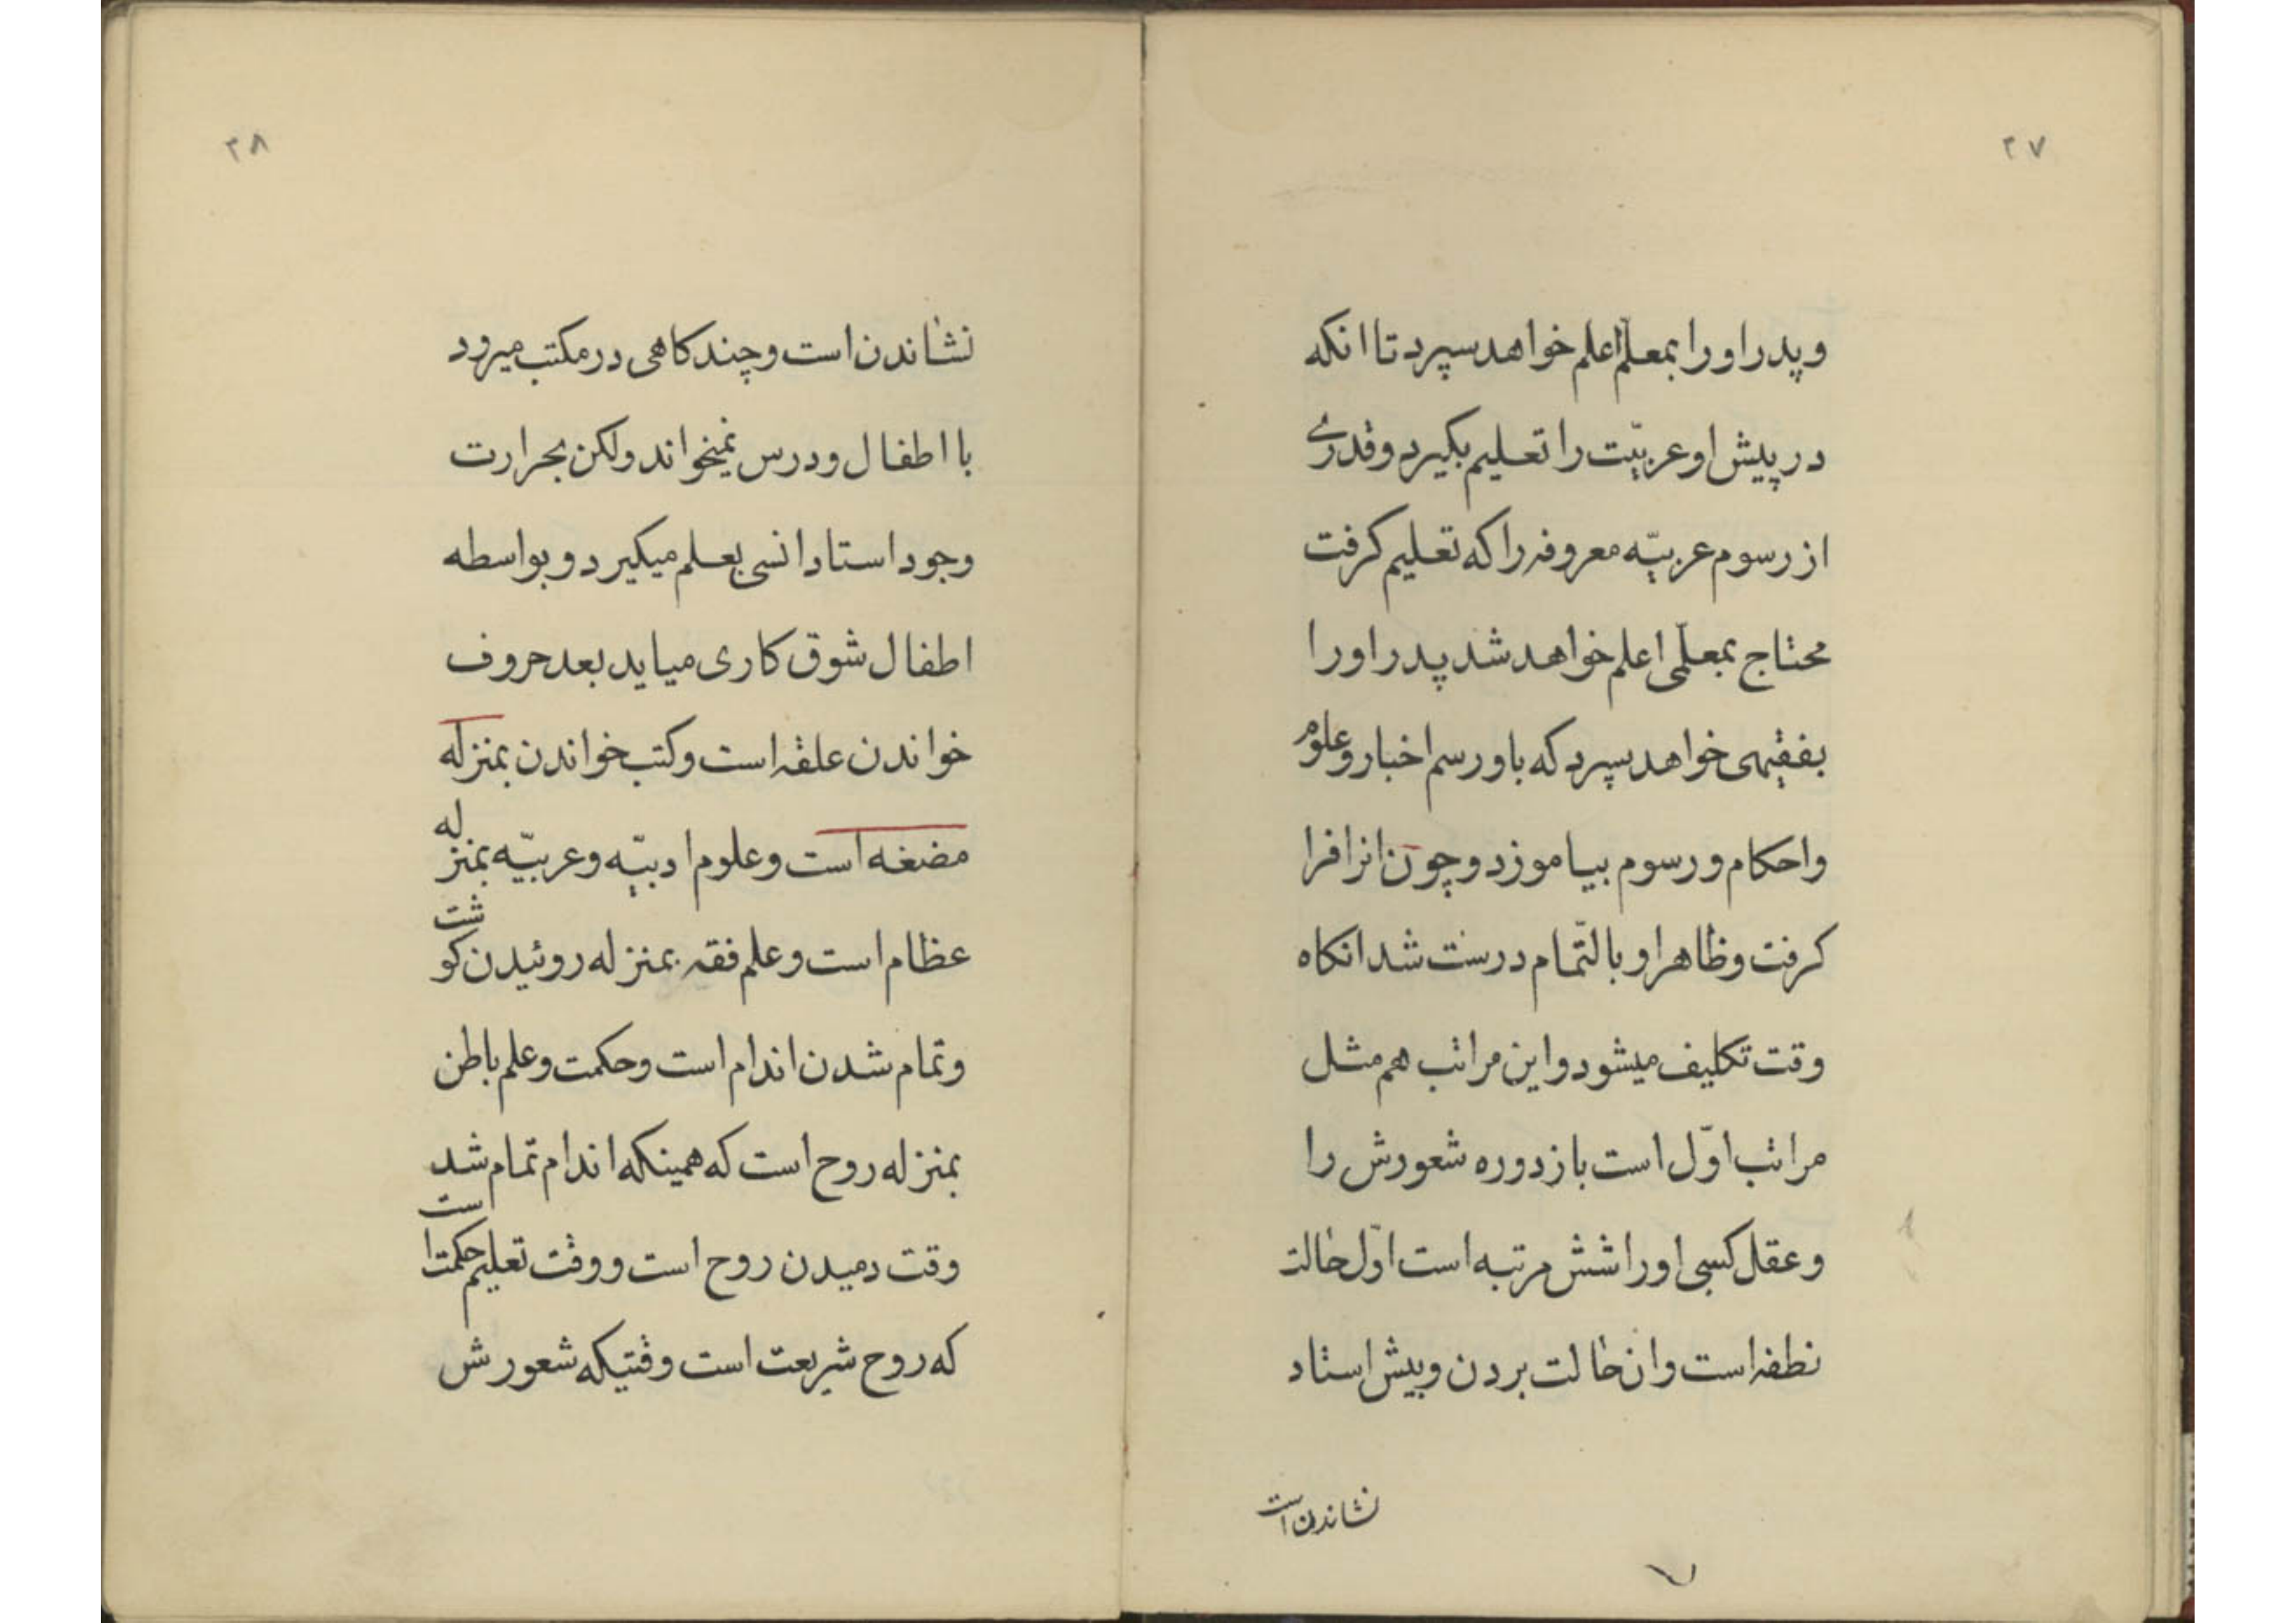 ۲۷
و پدر او را بمعلّم اعلم خواهد سپرد تا انکه
در پیش او عربیّت را تعلیم بکیرد و قدری
از رسوم عربیّه معروفه را که تعلیم کرفت
محتاج بمعلّمی اعلم خواهد شد پدر او را
بفقیهی خواهد سپرد که باو رسم اخبار و علوم
و احکام و رسوم بیاموزد و چون انرا فرا
کرفت و ظاهر او بالتّمام درست شد انکاه
وقت تکلیف میشود و این مراتب هم مثل
مراتب اوّل است باز دوره شعورش را
و عقل کسبی او را شش مرتبه است اوّل حالت
نطفه است و ان حالت بردن و پیش استاد
نشاندن است
۲۸
نشاندن است و چند کاهی در مکتب میرود
با اطفال و درس نمیخواند ولکن بحرارت
وجود استاد انسی بعلم میکیرد و بواسطه
اطفال شوق کاری میاید بعد حروف
خواندن علقه است و کتب خواندن بمنزله
مضغه است و علوم ادبیّه و عربیّه بمنزله
عظام است و علم فقه بمنزله روئیدن کوشت
و تمام شدن اندام است و حکمت و علم باطن
بمنزله روح است که همینکه اندام تمام شد
وقت دمیدن روح است و وقت تعلیم حکمت است
که روح شریعت است وقتیکه شعورش